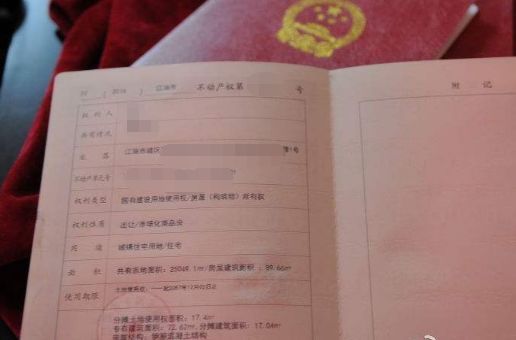 ( 2016 ) 江油市 不动产权第 号
附 记
权 利 人
共有情况
坐 落 江油市建区 1号
不动产单元号
权利类型 国有建设用地使用权/房屋(构筑物)所有权
权利性质 出让/市场化商品房
用 途 城镇住宅用地/住宅
面 积 共有宗地面积:25049.1m²/房屋建筑面积:89.66m²
使用期限 土地使用权: 起2067年12月02日止
分摊土地使用权面积:17.4m²
专有建筑面积:72.62m²,分摊建筑面积:17.04m²
房屋结构:钢筋混凝土结构